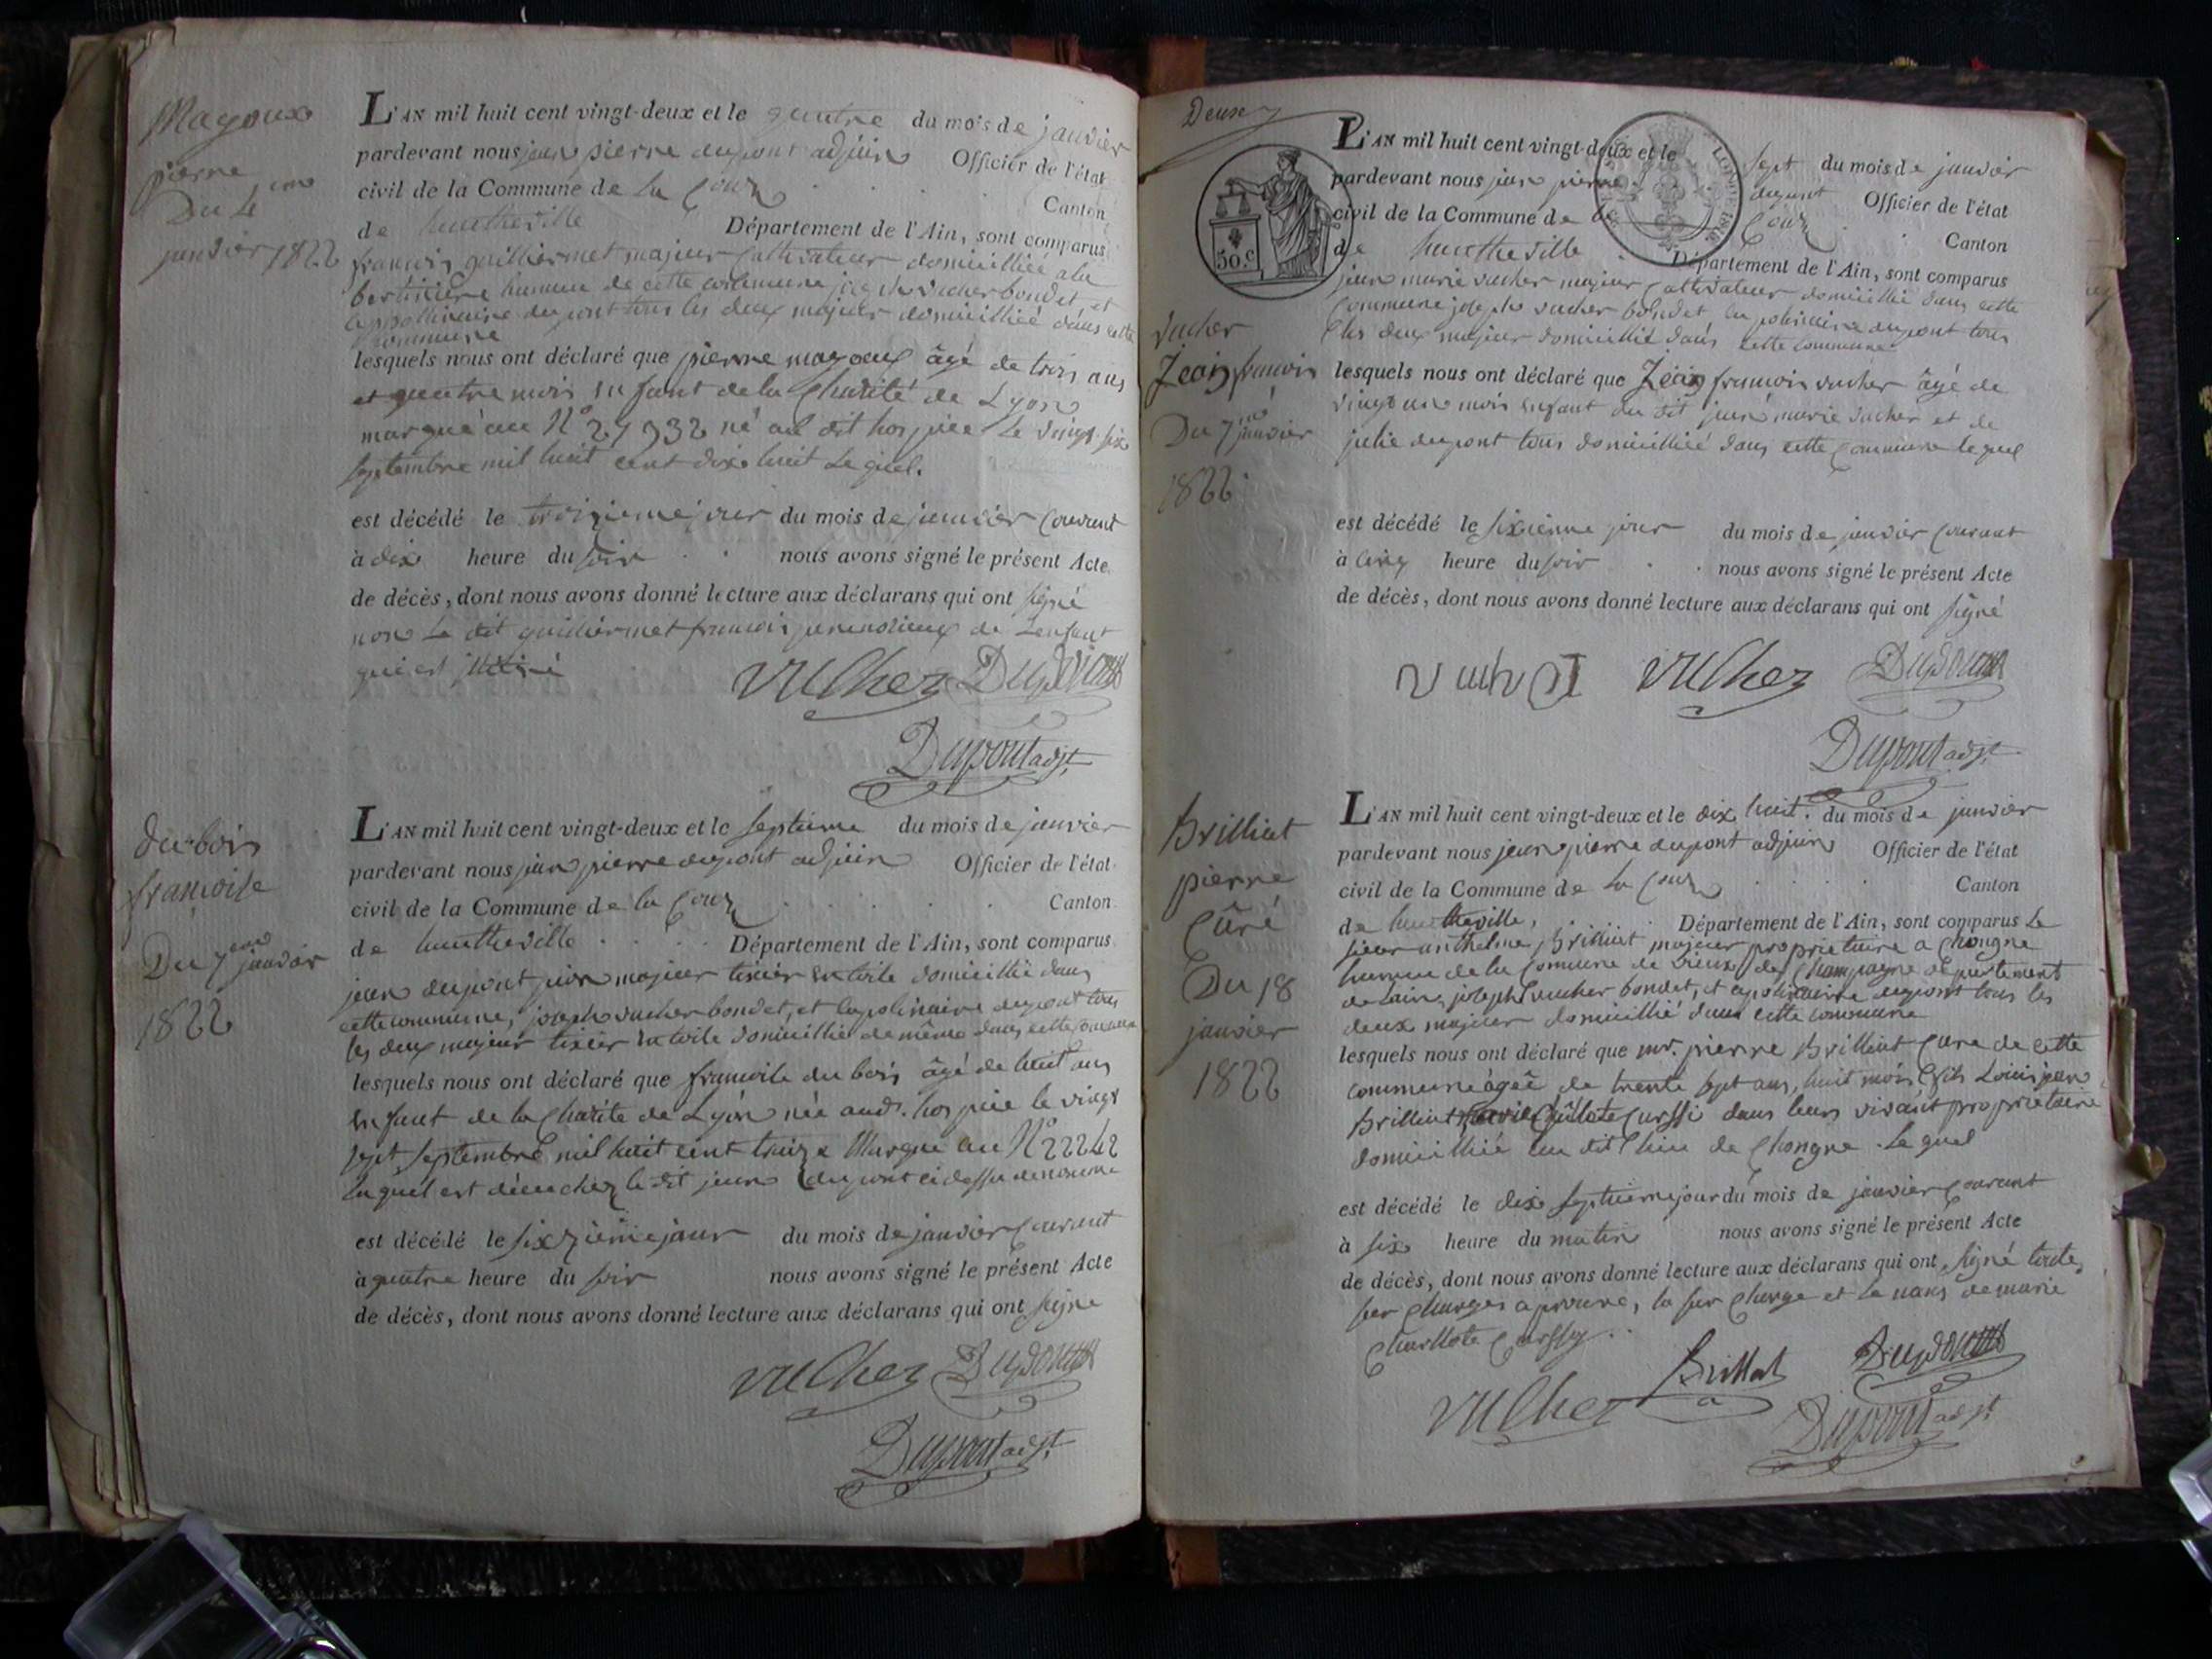 Magoux
pierre
Du 4 eme
janvier 1822
L'AN mil huit cent vingt-deux et le quatre du mois de janvier
pardevant nous jean pierre dupont adjoin Officier de l'état
civil de la Commune de la Coux Canton
de hautheville Département de l'Ain, sont comparus
francois guilliermet majeur Cultivateur domicillié a la
hameau de cette commune vucher bondet et
apollinaire dupont tous les deux majeur domicillié dans cette
commune
lesquels nous ont déclaré que pierre magoux âgé de trois ans
et quatre mois enfant de la Charité de Lyon
marqué au N° né au dit hospice le vingt six
septembre mil huit cent dix huit Lequel.
est décédé le troizieme jour du mois de janvier Courant
à dix heure du soir nous avons signé le présent Acte
de décès, dont nous avons donné lecture aux déclarans qui ont signé
non Le dit guilliermet francois de Lenfant
qui est
VUCher Dupont
Dupont adjt
du bois
francoise
Du 7 eme janvier
1822
L'AN mil huit cent vingt-deux et le septieme du mois de janvier
pardevant nous jean pierre dupont adjoin Officier de l'état
civil de la Commune de la Coux Canton
de hautheville Département de l'Ain, sont comparus
jean dupont majeur tisier en toile domicillié dans
cette commune, joseph vucher bondet, et lapolinaire dupont tous
les deux majeur tisier en toile domicillié de même dans cette commune
lesquels nous ont déclaré que francoise du bois âgé de huit ans
enfant de la Charité de Lyon née aud. hospice le vingt
sept septembre mil huit cent treize Marqué au N° 22242
laquel est décédé chez le dit jean dupont ci dessu denommé
est décédé le sixzieme jour du mois de janvier Courant
à quatre heure du soir nous avons signé le présent Acte
de décès, dont nous avons donné lecture aux déclarans qui ont signe
VUCher Dupont
Dupont adjt
Deux
50.c
vucher
Jean francois
Du 7 me janvier
1822
L'AN mil huit cent vingt-deux et le sept du mois de janvier
pardevant nous jean pierre dupont Officier de l'état
civil de la Commune de la Coux Canton
de hautheville Département de l'Ain, sont comparus
jean marie vucher majeur Cultivateur domicillié dans cette
Commune joseph vucher bondet lapolinaire dupont tous
les deux majeur domicillié dans cette commune
lesquels nous ont déclaré que Jean francois vucher âgé de
vingt un mois enfant du dit jean marie vucher et de
julie dupont tous domicillié dans cette Commune lequel
est décédé le sixieme jour du mois de janvier Courant
à cinq heure du soir nous avons signé le présent Acte
de décès, dont nous avons donné lecture aux déclarans qui ont signé
VUCher Dupont
Dupont adjt
Brilliat
pierre
Curé
Du 18
janvier
1822
L'AN mil huit cent vingt-deux et le dix huit. du mois de janvier
pardevant nous jean pierre dupont adjoin Officier de l'état
civil de la Commune de la Coux Canton
de hautheville, Département de l'Ain, sont comparus Le
sieur anthelme Brilliat majeur proprietaire a Chongne
hameu de la Comune de vieux de Champagne departement
de Lain, joseph vucher bondet, et apolinaire dupont tous les
deux majeur domicillié dans cette commune
lesquels nous ont déclaré que mr. pierre Brilliat Cure de cette
commune âgée de trente sept ans, huit mois fils Louis jean
Brilliat marie Curssi dans leurs vivant proprietaire
domicillié au dit lieu de Chongne. Le quel
est décédé le dix septieme jour du mois de janvier Courant
à six heure du matin nous avons signé le présent Acte
de décès, dont nous avons donné lecture aux déclarans qui ont signé toute
ser Charges aprouve, la ser Charge et Le nans de marie
Charllote Curssy
VUCher Brillat Dupont
Dupont adjt